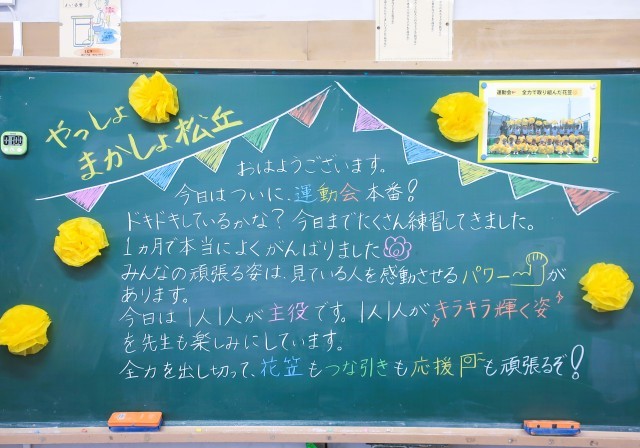 やっしょ
まかしょ松丘
運動会 全力で取り組んだ花笠
おはようございます。
今日はついに、運動会本番!
ドキドキしているかな?今日までたくさん練習してきました。
1ヵ月で本当によくがんばりました
みんなの頑張る姿は、見ている人を感動させるパワーが
あります。
今日は1人1人が主役です。1人1人がキラキラ輝く姿
を先生も楽しみにしています。
全力を出し切って、花笠もつな引きも応援も頑張るぞ!